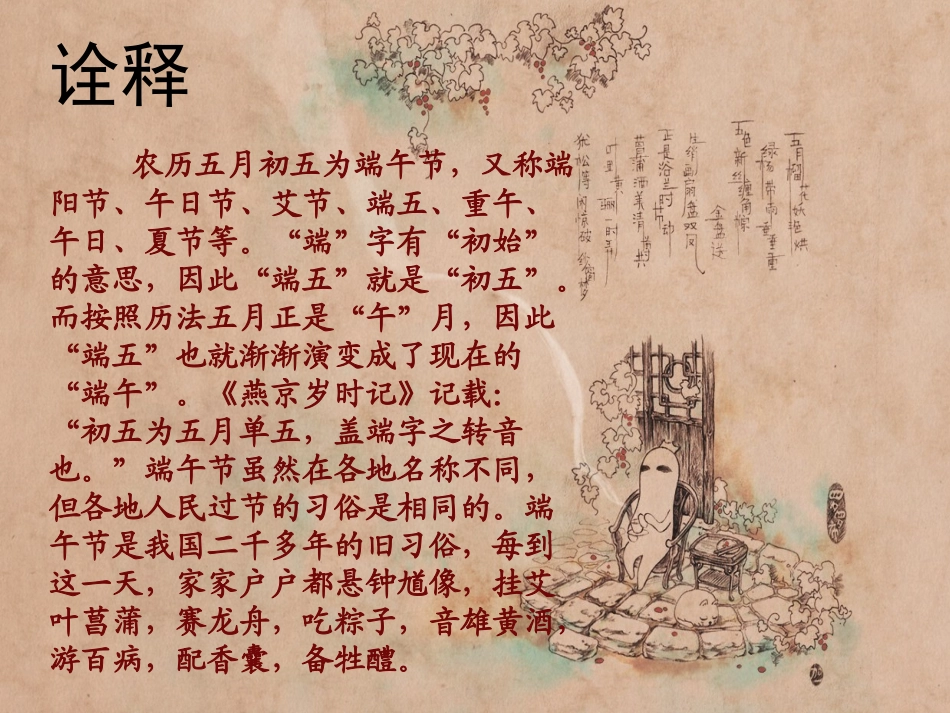 诠释
农历五月初五为端午节，又称端
阳节、午日节、艾节、端五、重午、
午日、夏节等。“端”字有“初始”
的意思，因此“端五”就是“初五”。
而按照历法五月正是“午”月，因此
“端五”也就渐渐演变成了现在的
“端午”。《燕京岁时记》记载：
“初五为五月单五，盖端字之转音
也。”端午节虽然在各地名称不同，
但各地人民过节的习俗是相同的。端
午节是我国二千多年的旧习俗，每到
这一天，家家户户都悬钟馗像，挂艾
叶菖蒲，赛龙舟，吃粽子，音雄黄酒，
游百病，配香囊，备牲醴。
五月榴花妖艳烘
绿杨带雨垂垂重
五色新丝缠角粽
金盘送
生绡画扇盘双凤
正是浴兰时节动
菖蒲酒美清尊共
叶里黄骊一时弄
犹松等闲惊破纱窗梦